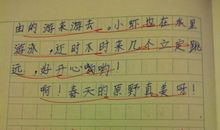 由的游来游去。小虾也在水里
游泳，还时不时来几个立定跳
远，好开心哟哟！
啊！春天的原野真美呀！